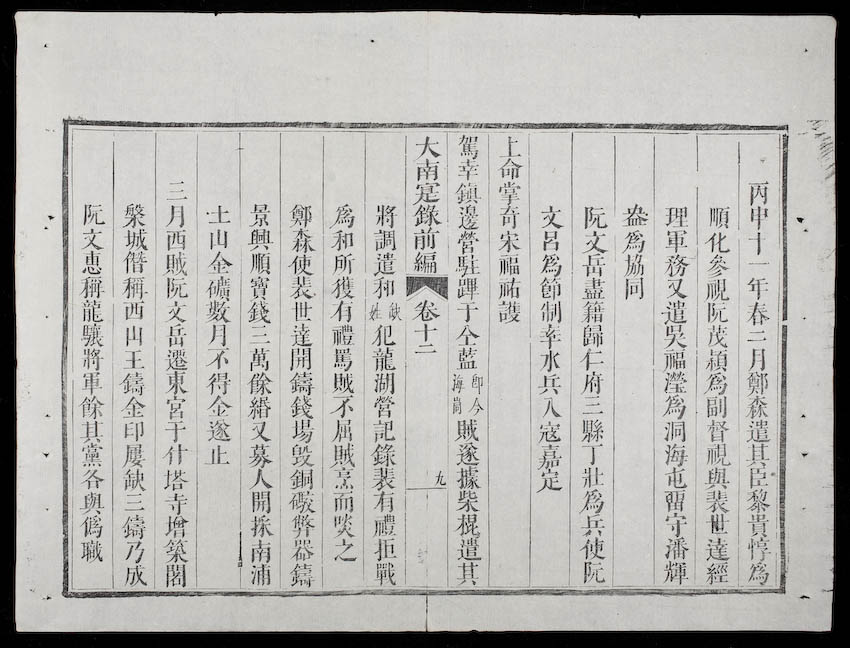 丙申十一年春二月鄭森遣其臣黎貴惇爲
順化參視阮茂穎爲副督視與裴世達經
理軍務又遣吳福瀅爲洞海屯畱守潘輝
盎爲協同
阮文岳盡籍歸仁府三縣丁壯爲兵使阮
文呂爲節制率水兵入寇嘉定
上命掌奇宋福祐護
駕幸鎮邊營駐蹕于仝藍即今海崗賊遂據柴棍遣其
大南寔錄前編 卷十二 九
將調遣和缺姓犯龍湖營記錄裴有禮拒戰
爲和所獲有禮罵賊不屈賊烹而啖之
鄭森使裴世達開鑄錢場毀銅礮弊器鑄
景興順寶錢三萬餘緡又募人開採南浦
土山金礦數月不得金遂止
三月西賊阮文岳遷東宮于什塔寺增築闍
槃城僭稱西山王鑄金印屢缺三鑄乃成
阮文惠稱龍驤將軍餘其黨各與僞職